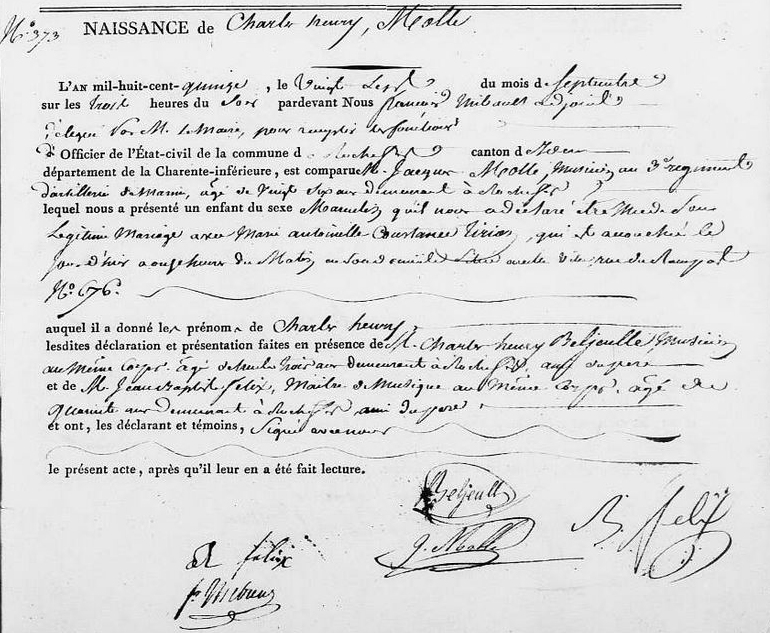 N.° 373 NAISSANCE de Charles henry, Molle
L'AN mil-huit-cent-quinze, le Vingt Sept du mois de Septembre
sur les trois heures du Soir pardevant Nous françois Thibault adjoint
délégué Par M. le Maire, pour remplir les fonctions
d'Officier de l'État-civil de la commune de Rochefort canton d'Idem
département de la Charente-inférieure, est comparu M. Jacques Molle, Musicien au 3.e regiment
d'artillerie de Marine, agé de Vingt Six ans demeurant à Rochefort
lequel nous a présenté un enfant du sexe Masculin qu'il nous a declaré être né de Son
Legitime Mariage avec Marie antoinette Constance, qui est accouchée le
jour d'hier a onze heures du Matin en Son domicile en cette Ville, rue du Rempart
N.° 676.
auquel il a donné les prénoms de Charles henry,
lesdites déclaration et présentation faites en présence de M. Charles henry Beljeulle, Musicien
au Même Corps, agé de trente trois ans demeurant à Rochefort, ami du pere
et de M. Jean Baptiste felix, Maitre de Musique au Même Corps, agé de
quarante ans demeurant à Rochefort ami du pere
et ont, les déclarant et témoins, Signé avec nous
le présent acte, après qu'il leur en a été fait lecture.
Beljeulle
B. felix
J. Molle
félix